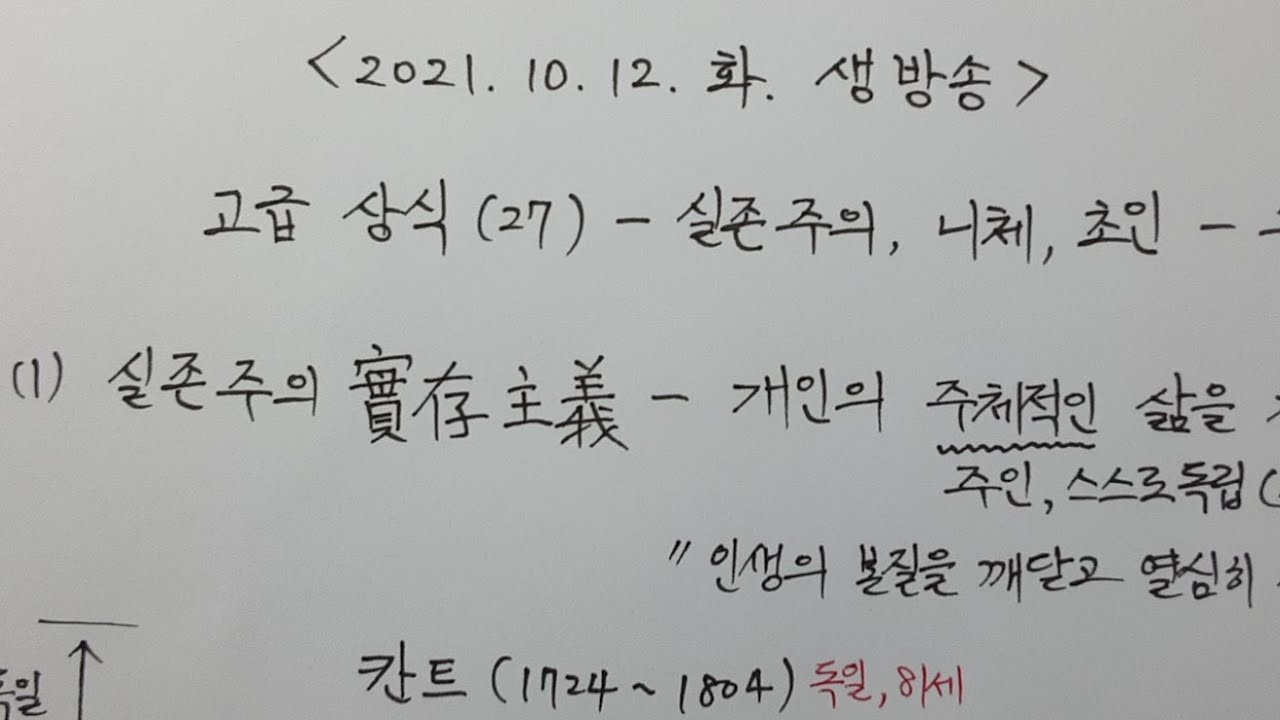 <2021. 10. 12. 화. 생방송>
고급 상식 (27) - 실존주의, 니체, 초인 -
(1) 실존주의 實存主義 - 개인의 주체적인 삶을
주인, 스스로독립 (
" 인생의 본질을 깨닫고 열심히
독일 ↑ 칸트 (1724 ~ 1804) 독일, 81세